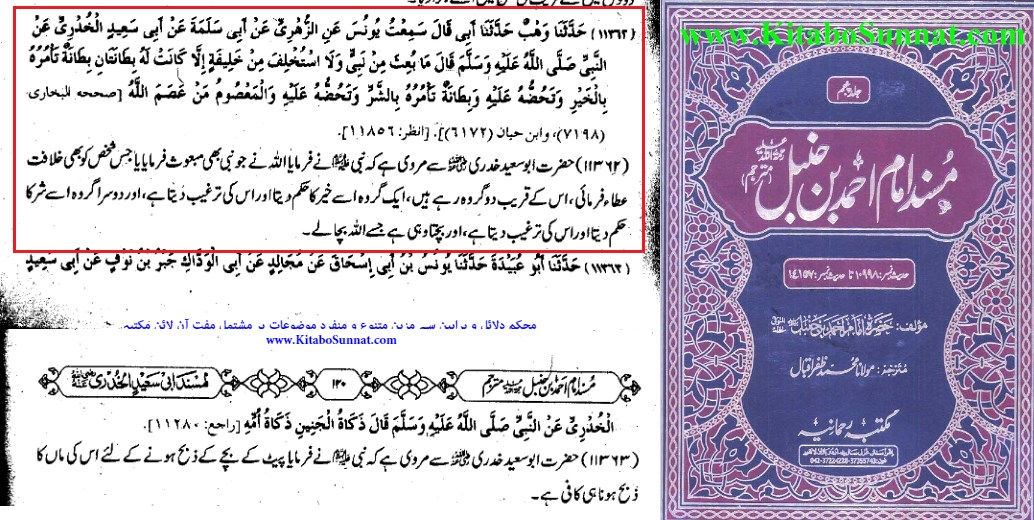 (۱۱۳۶۲) حَدَّثَنَا وَهْبٌ حَدَّثَنَا أَبِي قَالَ سَمِعْتُ يُونُسَ عَنِ الزُّهْرِيِّ عَنْ أَبِي سَلَمَةَ عَنْ أَبِي سَعِيدٍ الْخُدْرِيِّ عَنْ
النَّبِيِّ صَلَّى اللَّهُ عَلَيْهِ وَسَلَّمَ قَالَ مَا بُعِثَ مِنْ نَبِيٍّ وَلَا اسْتُخْلِفَ مِنْ خَلِيفَةٍ إِلَّا كَانَتْ لَهُ بِطَانَتَانِ بِطَانَةٌ تَأْمُرُهُ
بِالْخَيْرِ وَتَحُضُّهُ عَلَيْهِ وَبِطَانَةٌ تَأْمُرُهُ بِالشَّرِّ وَتَحُضُّهُ عَلَيْهِ وَالْمَعْصُومُ مَنْ عَصَمَ اللَّهُ [صححه البخاری
(۷۱۹۸)، وابن حبان (۶۱۷۲)]. [انظر: ۱۱۸۵۶].
(۱۱۳۶۲) حضرت ابوسعید خدری رضی اللہ عنہ سے مروی ہے کہ نبی ﷺ نے فرمایا اللہ نے جو نبی بھی مبعوث فرمایا یا جس شخص کو بھی خلافت
عطاء فرمائی، اس کے قریب دو گروہ رہے ہیں، ایک گروہ اسے خیر کا حکم دیتا اور اس کی ترغیب دیتا ہے، اور دوسرا گروہ اسے شر کا
حکم دیتا اور اس کی ترغیب دیتا ہے، اور بچتا وہی ہے جسے اللہ بچا لے۔
حَدَّثَنَا أَبُو عُبَيْدَةَ حَدَّثَنَا يُونُسُ بْنُ أَبِي إِسْحَاقَ عَنْ مُجَالِدٍ عَنْ أَبِي الْوَدَّاكِ جَبْرُ بْنُ نَوْفٍ عَنْ أَبِي سَعِيدٍ
محکم دلائل و براہین سے مزین متنوع و منفرد موضوعات پر مشتمل مفت آن لائن مکتبہ
www.KitaboSunnat.com
مُسند امام احمد بن حنبل مترجم ۱۲۰ مُسند ابی سعید الخدری رضی اللہ عنہ
الْخُدْرِيِّ عَنْ النَّبِيِّ صَلَّى اللَّهُ عَلَيْهِ وَسَلَّمَ قَالَ ذَكَاةُ الْجَنِينِ ذَكَاةُ أُمِّهِ [راجع: ۱۱۲۸۰].
(۱۱۳۶۳) حضرت ابوسعید خدری رضی اللہ عنہ سے مروی ہے کہ نبی ﷺ نے فرمایا پیٹ کے بچے کے ذبح ہونے کے لئے اس کی ماں کا
ذبح ہونا ہی کافی ہے۔
www.KitaboSunnat.com
جلد پنجم
مُسند امام احمد بن حنبل
(مترجم)
حدیث نمبر: ۱۰۹۹۸ تا حدیث نمبر: ۱۴۱۵۷
مؤلف: حضرت امام احمد بن حنبل
مترجم: مولانا محمد ظفر اقبال
مکتبہ رحمانیہ
042-37224228-37355743